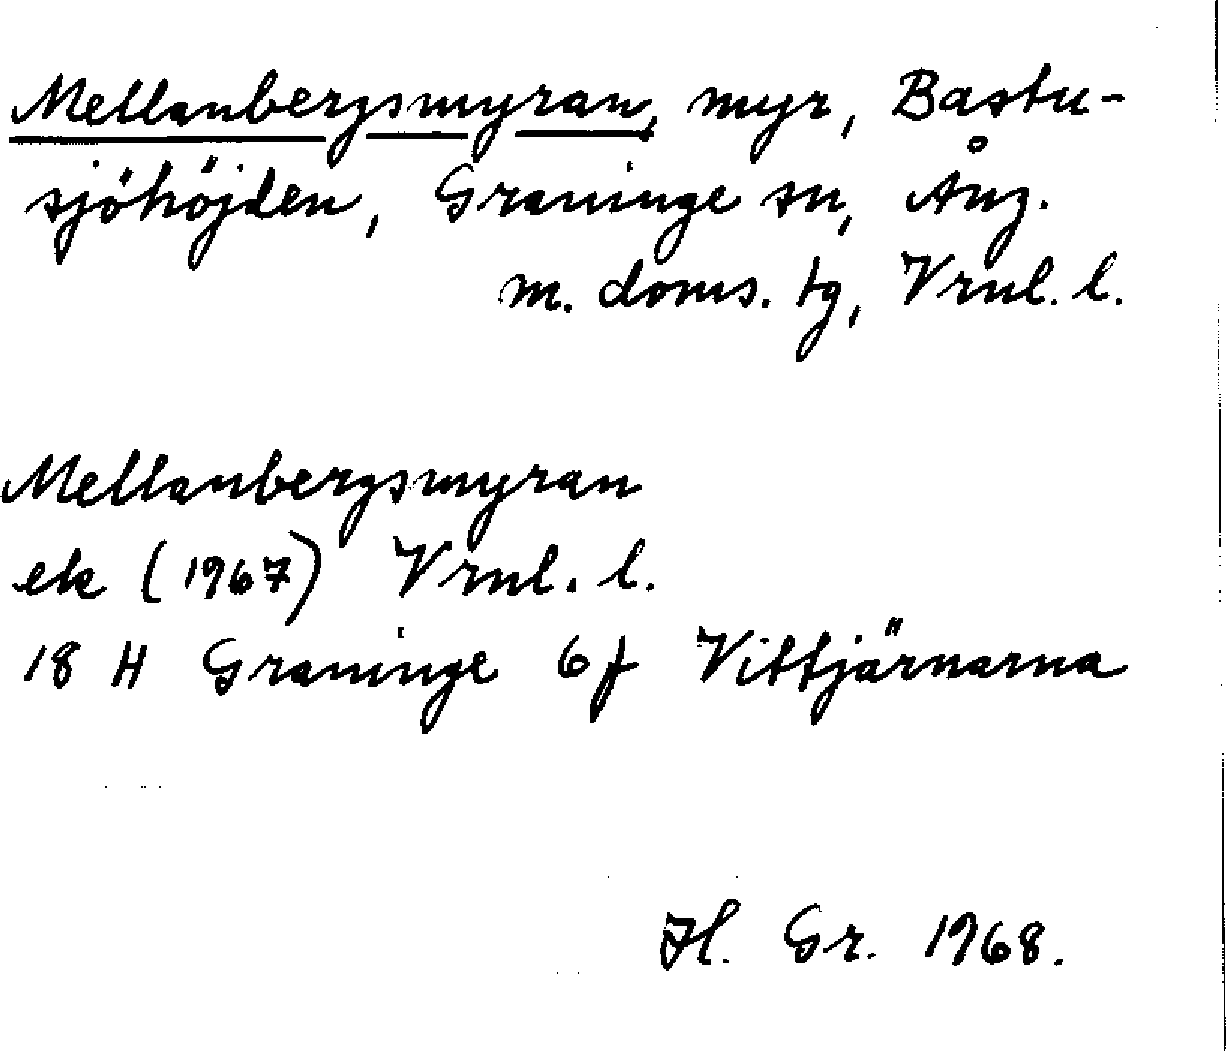 Mellanbergsmyran, myr, Bastu-
sjöhöjden, Graninge sn, Ång.
m. doms. tg, Vrnl. l.
Mellanbergsmyran
ek (1967) Vrnl. l.
18 H Graninge 6f Vittjärnarna
Hl. Gr. 1968.